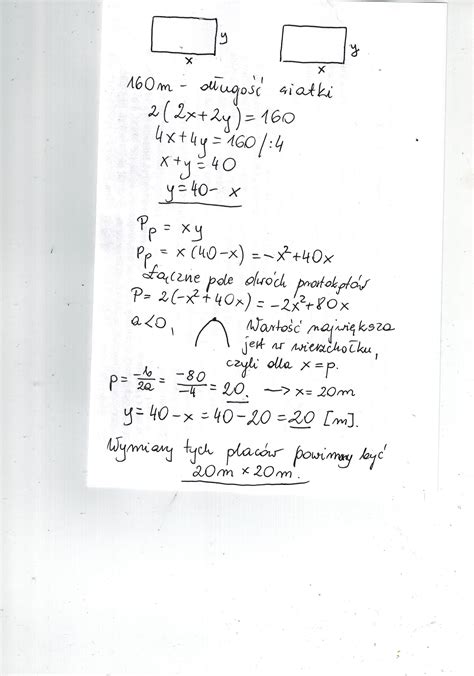 y y
x x
160m - długość siatki
2(2x+2y)=160
4x+4y=160/:4
x+y=40
y=40-x
Pp = xy
Pp = x(40-x)=-x²+40x
Łączne pole dwóch prostokątów
P=2(-x²+40x)=-2x²+80x
a<0, Wartość największa
jest w wierzchołku,
czyli dla x=p.
p=-b/2a=-80/-4=20. → x=20m
y=40-x=40-20=20 [m].
Wymiary tych placów powinny być
20m x 20m.